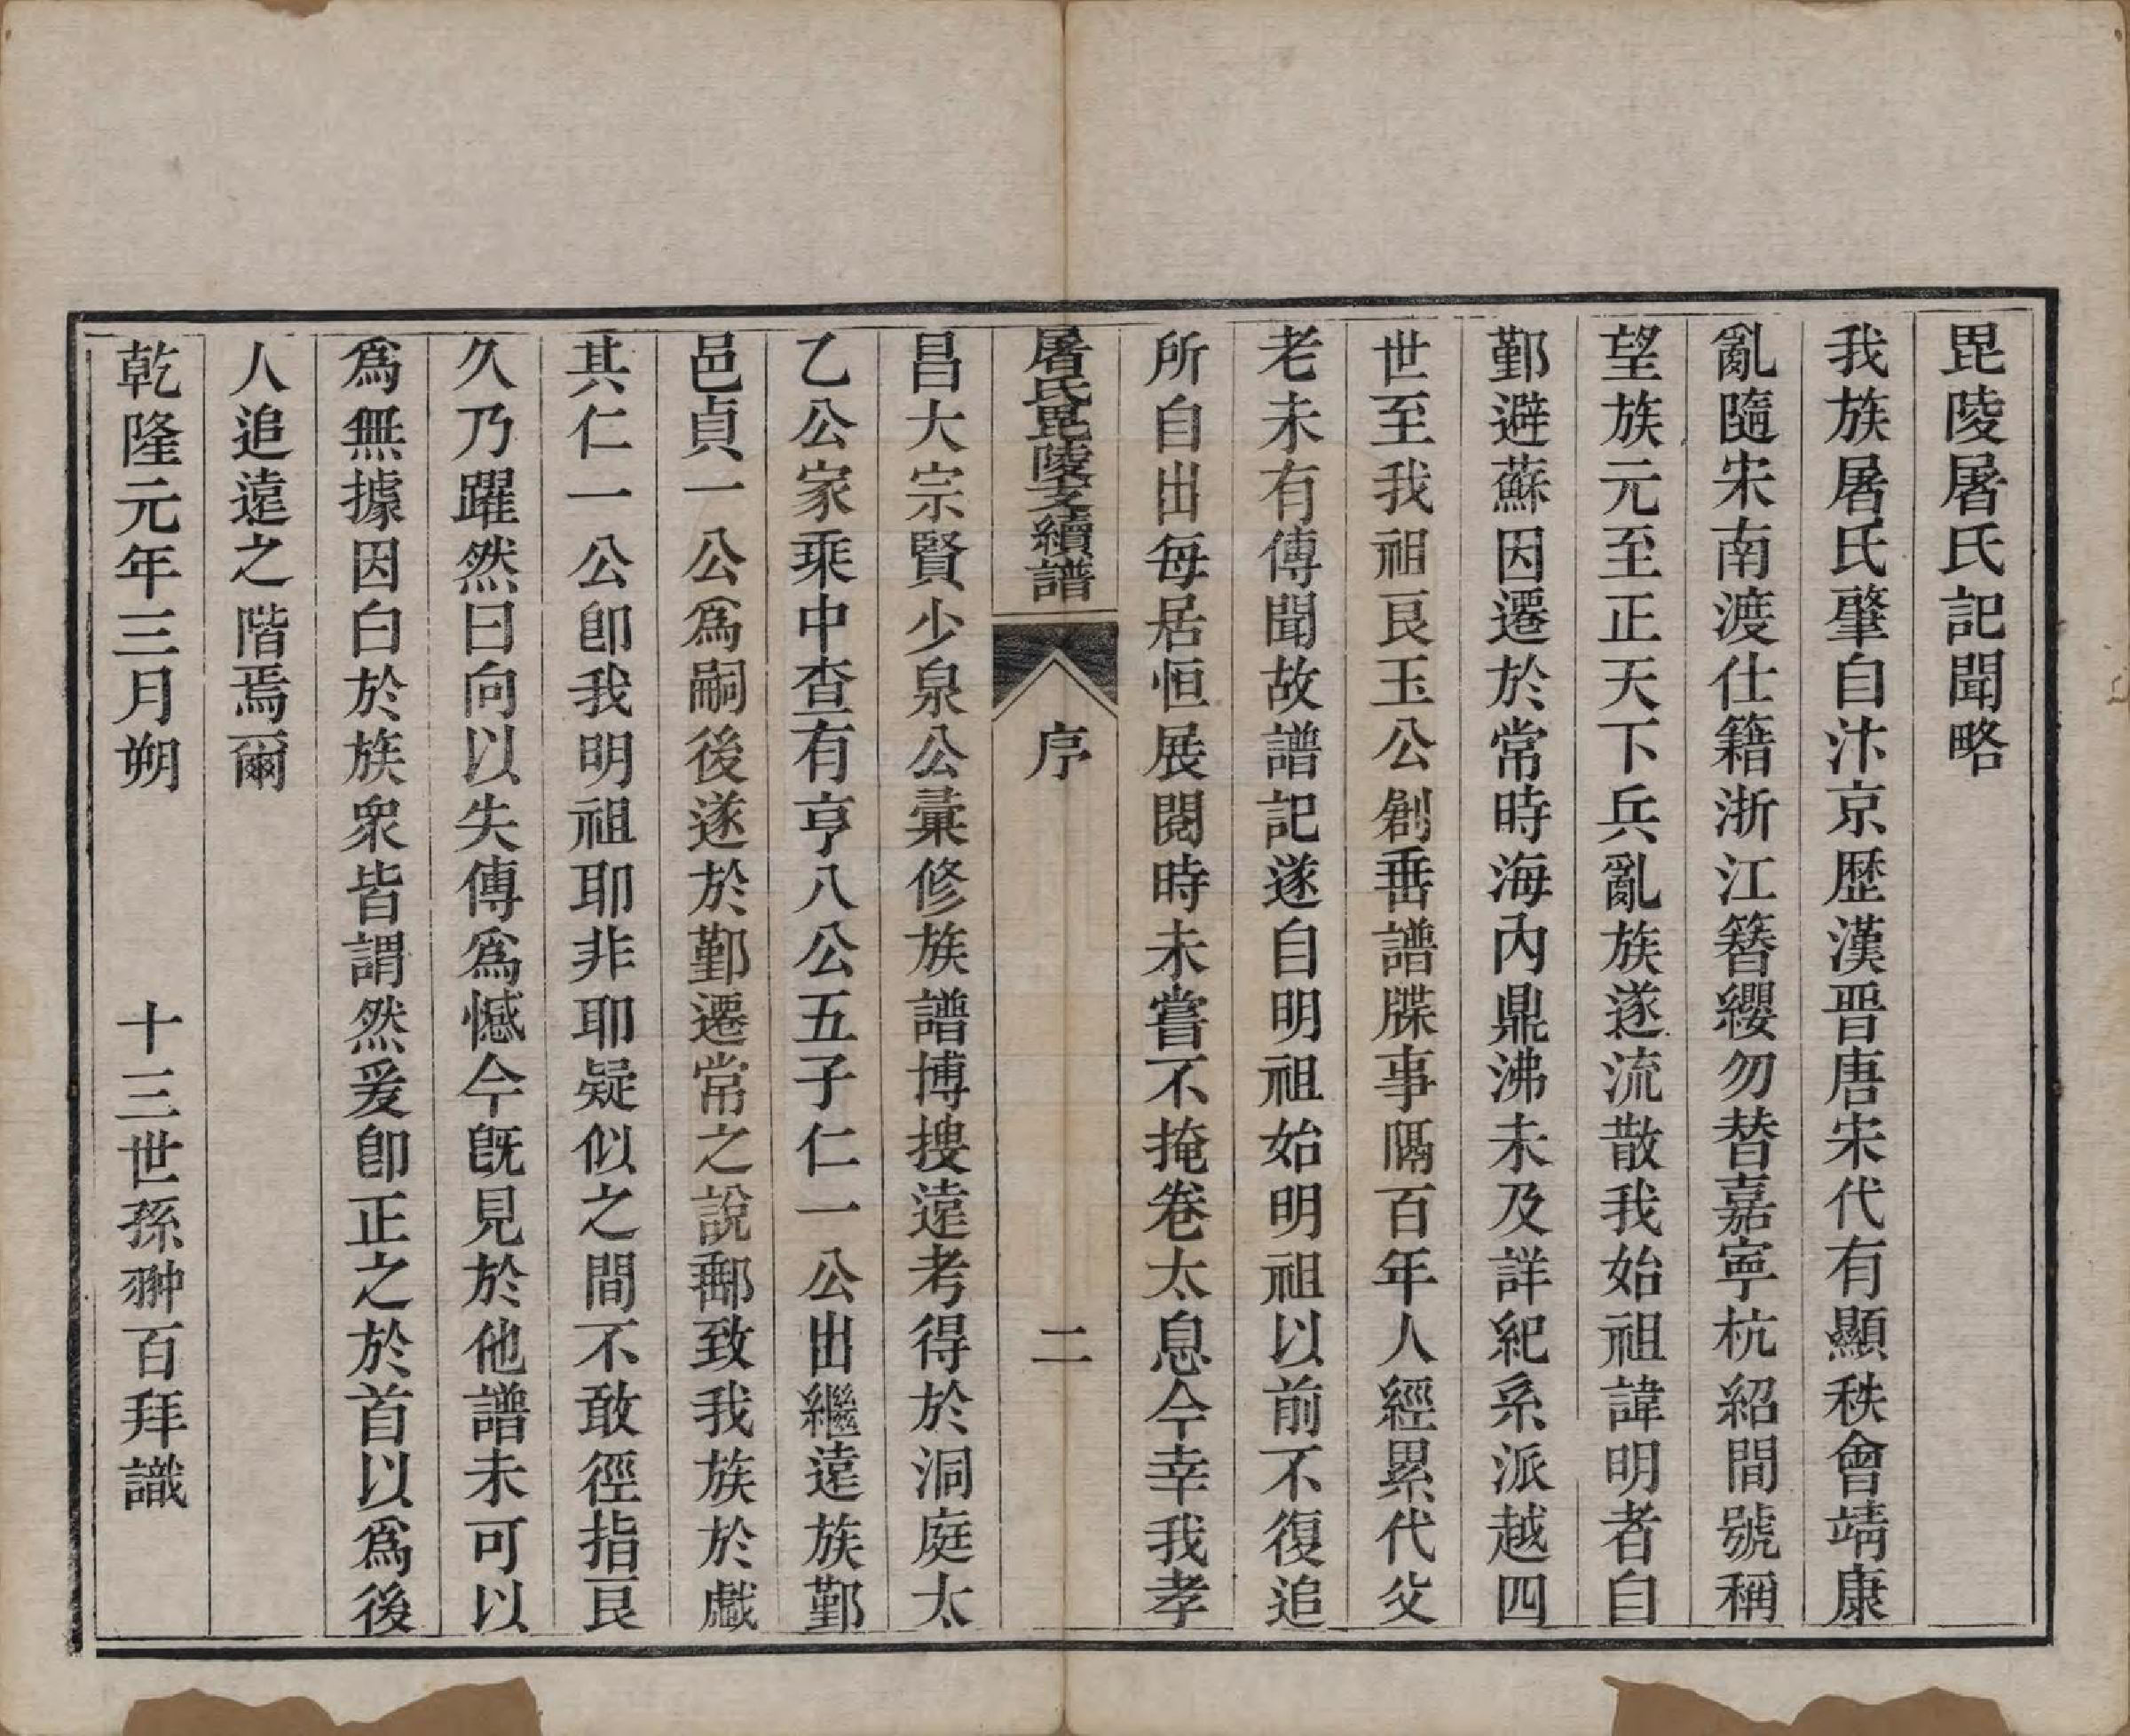 毘陵屠氏記聞略
我族屠氏肇自汴京歷漢晋唐宋代有顯秩會靖康
亂隨宋南渡仕籍浙江簪纓勿替嘉寧杭紹間號稱
望族元至正天下兵亂族遂流散我始祖諱明者自
鄞避蘇因遷於常時海內鼎沸未及詳紀系派越四
世至我祖艮玉公創垂譜牒事隔百年人經累代父
老未有傳聞故譜記遂自明祖始明祖以前不復追
所自出每居恒展閱時未嘗不掩卷太息今幸我孝
屠氏毘陵支續譜
序
二
昌大宗賢少泉公彙修族譜博搜遠考得於洞庭太
乙公家乘中查有亨八公五子仁一公出繼遠族鄞
邑貞一公爲嗣後遂於鄞遷常之說郵致我族於戲
其仁一公卽我明祖耶非耶疑似之間不敢徑指艮
久乃躍然曰向以失傳爲憾今旣見於他譜未可以
爲無據因白於族衆皆謂然爰卽正之於首以爲後
人追遠之階焉爾
乾隆元年三月朔　十三世孫翀百拜識